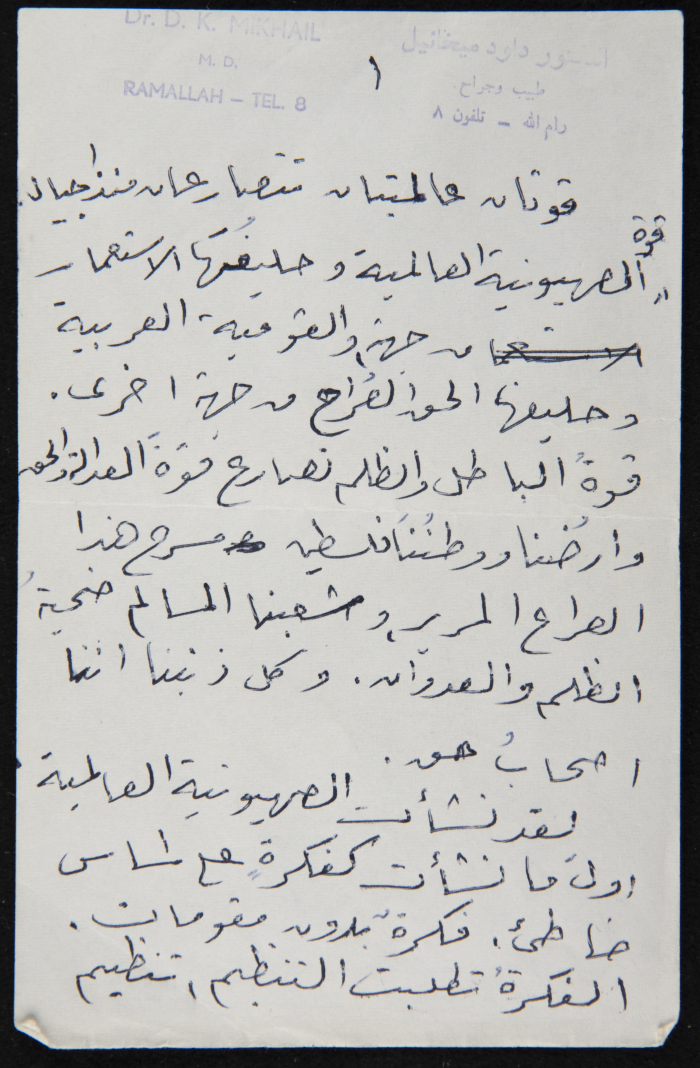 Dr. D. K. MIKHAIL
M. D.
RAMALLAH – TEL. 8
داود ميخائيل
طبيب وجراح
رام الله – تلفون ٨
١
قوتان عالميتان تتصارعان منذ اجيال.
قوة
الصهيونية العالمية وحليفتها الاستعمار
من جهة، والقومية العربية
وحليفها الحق الصُراح من جهة اخرى.
قوةُ الباطل والظلم تصارع قوّةَ العدالة والحق
وارضُنا ووطنُنا فلسطين مسرح هذا
الصراع المرير، وشعبنا المسالم ضحيةُ
الظلم والعدوان. وكل ذنبنا اننا
اصحابُ حق.
لقد نشأت الصهيونية العالمية
اولَ ما نشأت كفكرةٍ على اساس
خاطئ. فكرة بدون مقومات.
الفكرةُ تطلبت التنظيم، تنظيم